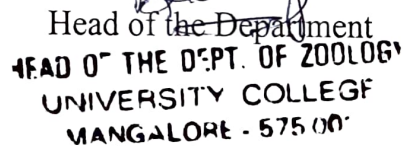 Head of the Department
HEAD OF THE DEPT. OF ZOOLOGY
UNIVERSITY COLLEGE
MANGALORE - 575 00